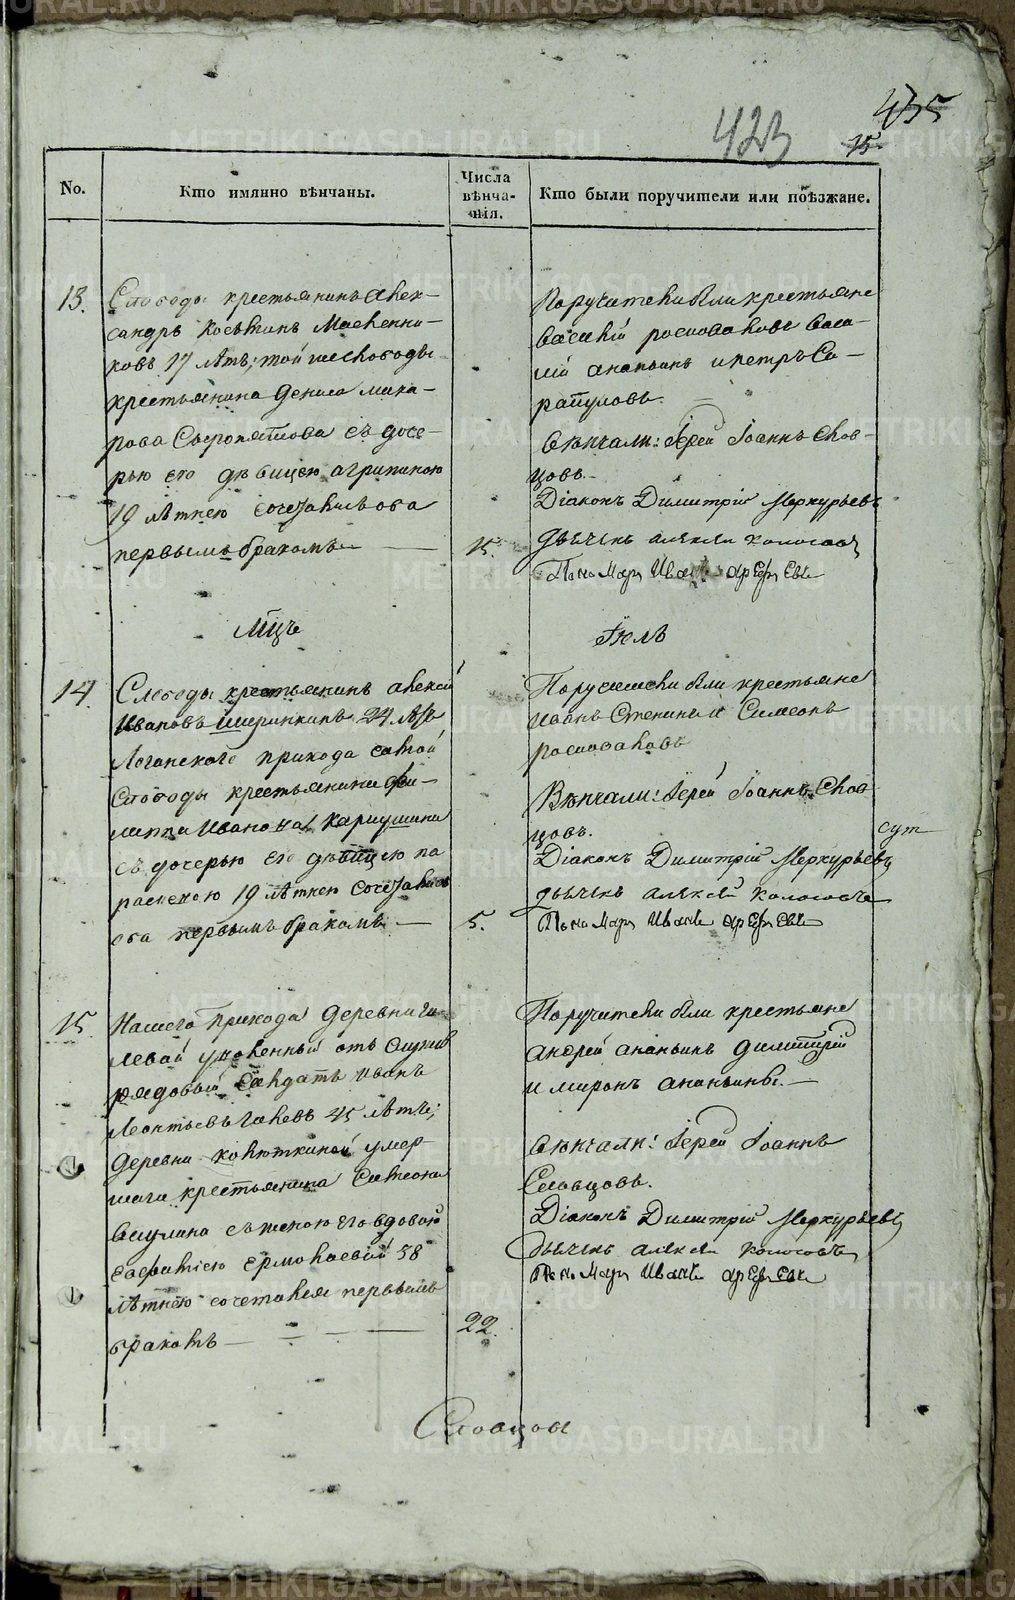 423
435
15
No.
Кто имянно вѣнчаны.
Числа вѣнча-нія.
Кто были поручители или поѣзжане.
13.
Слободы крестьянинъ Алек-
сандръ Масленни-
ковъ 17 лѣтъ; той же слободы
крестьянина Дениса Мака-
рова съ доче-
рью его дѣвицею Агрипиною
19 лѣтнею сочетались оба
первымъ бракомъ
15.
Поручители были крестьяне
Василій Васи-
лій Ананьинъ и Петръ Са-
рапуловъ.
Вѣнчали: Іерей Іоаннъ Слов-
цовъ.
Діаконъ Димитрій Меркурьевъ
Дьячекъ Алексей Колосовъ
Пономарь Иванъ Арефьевъ
Мцъ
Іюль
14.
Слободы крестьянинъ Алексей
Ивановъ 24 лѣтъ
прихода
Слободы крестьянина Фи-
липпа Иванова
съ дочерью его дѣвицею Па-
расквою 19 лѣтнею сочетались
оба первымъ бракомъ
5.
Поручители были крестьяне
Иванъ Стенинъ и Симеонъ
Вѣнчали: Іерей Іоаннъ Слов-
цовъ.
Діаконъ Димитрій Меркурьевъ
Дьячекъ Алексей Колосовъ
Пономарь Иванъ Арефьевъ
15.
Нашего прихода деревни Га-
левой уволенный отъ службы
рядовый солдатъ Иванъ
Леонтьевъ Галевъ 45 лѣтъ;
деревни умер-
шаго крестьянина Симеона
съ женою его вдовою
Ермолаевой 38
лѣтнею сочетался первымъ
бракомъ
22.
Поручители были крестьяне
Андрей Ананьинъ Димитрій
и Миронъ Ананьины.
Вѣнчали: Іерей Іоаннъ
Словцовъ.
Діаконъ Димитрій Меркурьевъ
Дьячекъ Алексей Колосовъ
Пономарь Иванъ Арефьевъ
Словцовы
METRIKI.GASO-URAL.RU